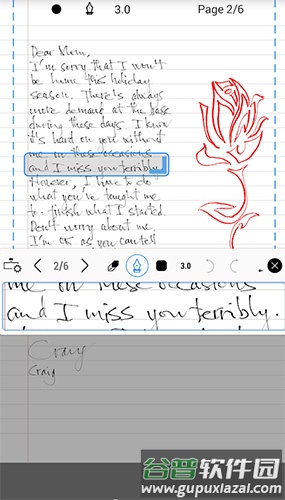 3.0 Page 2/6
Dear Mom,
I'm sorry that I won't
be home this holiday
season. There's always
more demand at the base
during these days. I know
it's hard on you without
me in these occasions
and I miss you terribly.
However, I have to do
what you've taught me
to finish what I started.
Don't worry about me,
I'm OK as you can tell
2/6 3.0
me in these occasions
and I miss you terribly.
Craig
Craig
谷普软件园
www.gupuxiazai.com